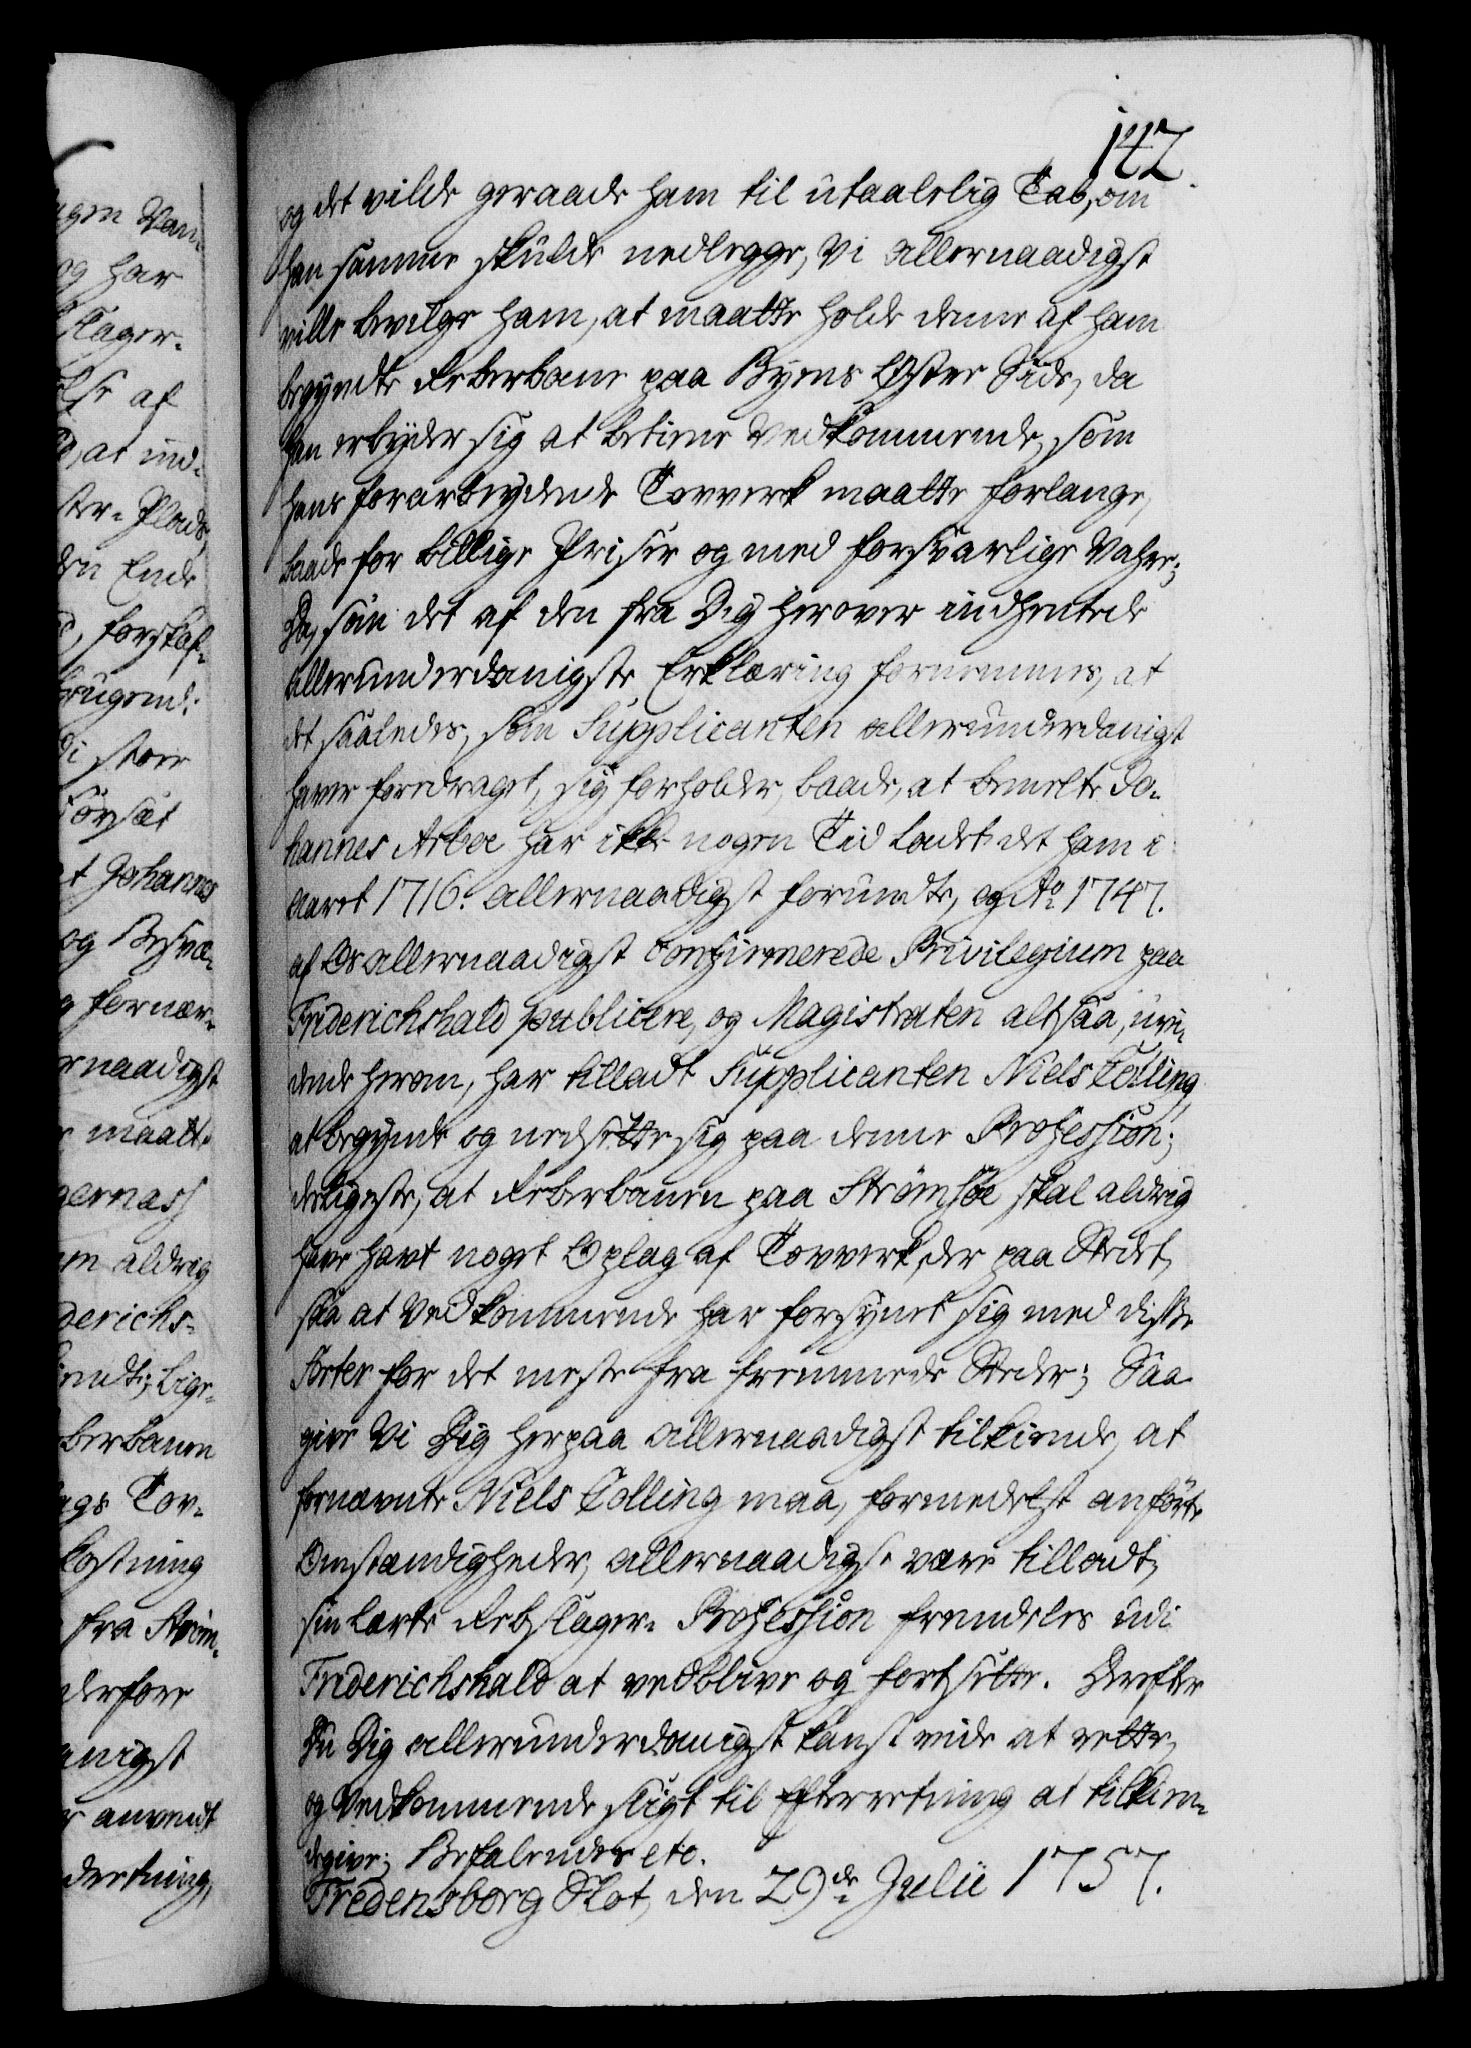 142
og det vilde geraade ham til utaalelig Tab, om
han samme skulde nedlegge, Vi allernaadigst
ville bevilge ham, at maatte holde denne af ham
begyndte Reberbane paa Byens Øster Side, da
han erbyder sig at betiene Vedkommende, som
hans forarbeydende Tovverk maatte forlange,
baade for billige Priser og med forsvarlige Vahre;
Da, som det af den fra Dig herover indhentede
allerunderdanigste Erklæring fornemmes, at
det saaledes, som Supplicanten allerunderdanigst
haver foredraget, sig forholder, baade, at bemelte Jo-
hannes Arboe har ikke nogen Tid ladet det ham i
Aaret 1716. allernaadigst forundte, og Ao 1747.
af Os allernaadigst confirmerede Privilegium paa
Friderichshald publicere, og Magistraten altsaa, uvi-
dende herom, har tilladt Supplicanten Niels Tolling
at begynde og nedsette sig paa denne Profession;
desligeste, at Reberbanen paa Strømsøe skal aldrig
have havt noget Oplag af Tovverk der paa Stedet,
saa at Vedkommende har forsynet sig med disse
Sorter for det meste fra fremmede Steder; Saa
give Vi Dig herpaa allernaadigst tilkiende, at
fornævnte Niels Tolling maa, formedelst anførte
Omstændigheder, allernaadigst være tilladt,
sin lærte Rebslager-Profession fremdeles udi
Friderichshald at vedblive og fortsette. Derefter
Du Dig allerunderdanigst kanst vide at rette,
og Vedkommende sligt til Efterretning at tilkien-
degive; Befalendes etc.
Fredensborg Slot, den 29de Julii 1757.